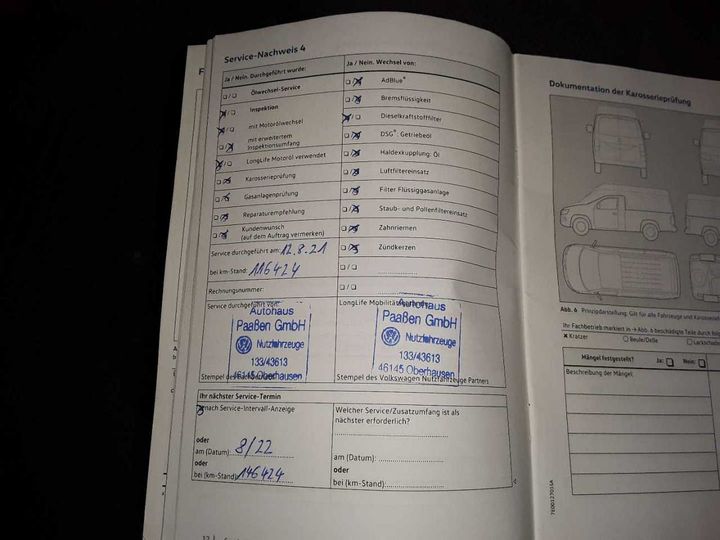 Service-Nachweis 4
Ja / Nein. Durchgeführt wurde:
Ölwechsel-Service
Inspektion
mit Motorölwechsel
mit erweitertem
Inspektionsumfang
LongLife Motoröl verwendet
Karosserieprüfung
Gasanlagenprüfung
Reparaturempfehlung
Kundenwunsch
(auf dem Auftrag vermerken)
Service durchgeführt am: 12.8.21
bei km-Stand: 116424
Rechnungsnummer:
Service durchgeführt von:
Autohaus
Paaßen GmbH
Nutzfahrzeuge
133/43613
46145 Oberhausen
Stempel des
Ja / Nein. Wechsel von:
AdBlue®
Bremsflüssigkeit
Dieselkraftstofffilter
DSG®, Getriebeöl
Haldexkupplung: Öl
Luftfiltereinsatz
Filter Flüssiggasanlage
Staub- und Pollenfiltereinsatz
Zahnriemen
Zündkerzen
LongLife Mobilitäts
Autohaus
Paaßen GmbH
Nutzfahrzeuge
133/43613
46145 Oberhausen
Stempel des Volkswagen Nutzfahrzeuge Partners
Ihr nächster Service-Termin
nach Service-Intervall-Anzeige
oder
am (Datum): 8/22
oder
bei (km-Stand): 146424
Welcher Service/Zusatzumfang ist als
nächster erforderlich?
am (Datum):
oder
bei (km-Stand):
Dokumentation der Karosserieprüfung
Abb. 6 Prinzipdarstellung: Gilt für alle Fahrzeuge und Karosserief
Ihr Fachbetrieb markiert in → Abb. 6 beschädigte Teile durch folge
Kratzer
Beule/Delle
Lackschade
Mängel festgestellt?
Ja:
Nein:
Beschreibung der Mängel:
7E0012701SA